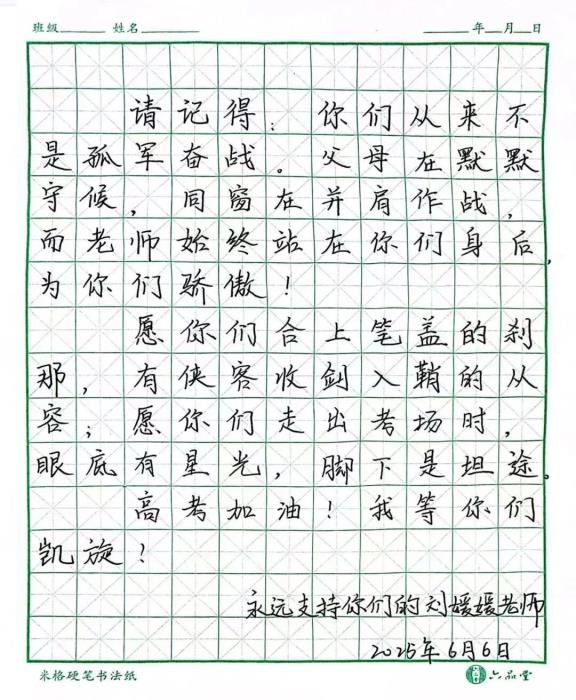 班级______ 姓名______ ______年__月__日
请记得：你们从来不
是孤军奋战。父母在默默
守候，同窗在并肩作战，
而老师始终站在你们身后，
为你们骄傲！
愿你们合上笔盖的刹
那，有侠客收剑入鞘的从
容；愿你们走出考场时，
眼底有星光，脚下是坦途。
高考加油！我等你们
凯旋！
永远支持你们的刘媛媛老师
2025年6月6日
米格硬笔书法纸 六品堂